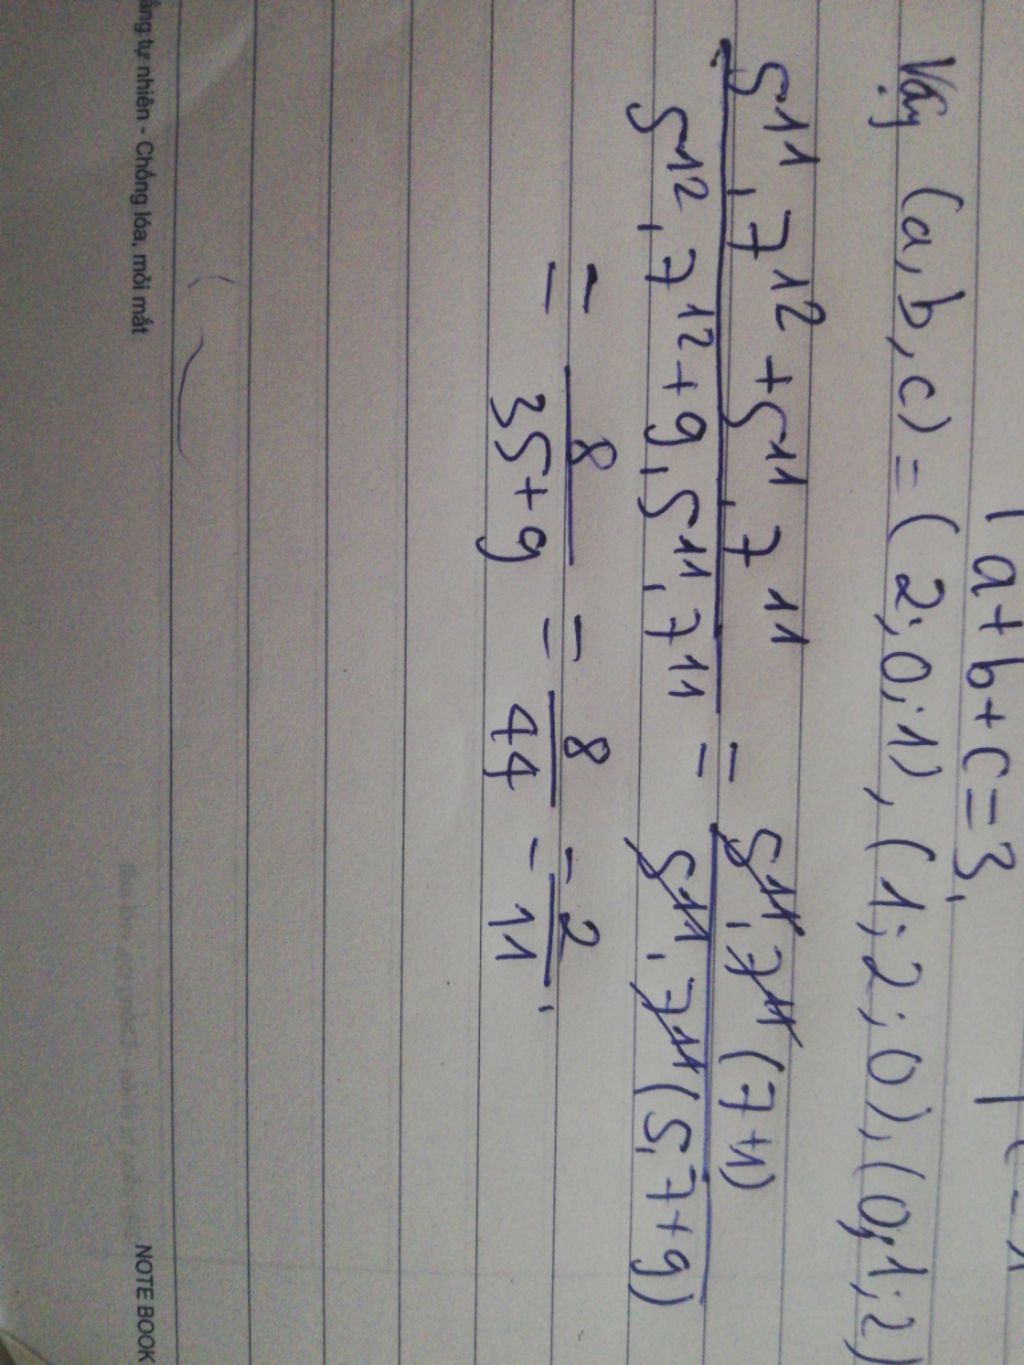 a+b+c=3.
Vậy (a,b,c) = (2;0;1), (1;2;0), (0;1;2)
5^11.7^12+5^11.7^11 / 5^12.7^12+9.5^11.7^11 = 5^11.7^11(7+1) / 5^11.7^11(5.7+9)
= 8 / 35+9 = 8 / 44 = 2 / 11.
NOTE BOOK
tự nhiên - Chống lóa, mỏi mắt